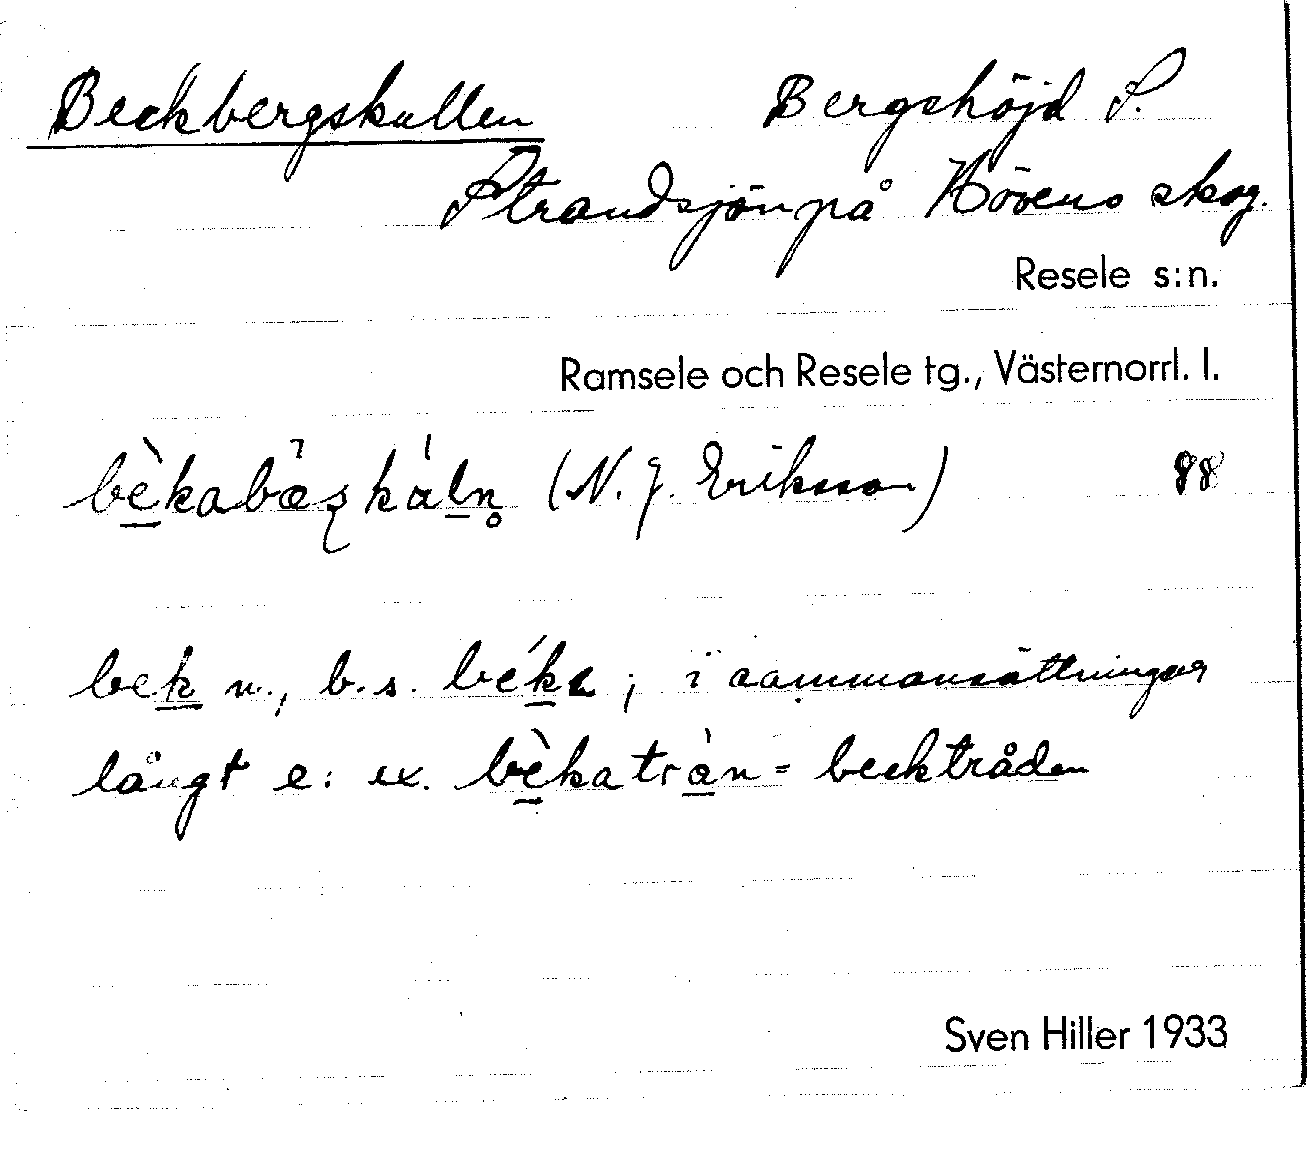 Beckbergskullen Bergshöjd S.
Strandsjön på Hövens skog.
Resele s:n.
Ramsele och Resele tg., Västernorrl. l.
bèkabæ̀ʂkáln̥ (N. J. Eriksson) 88
bek n., b.s. béka ; i sammansättningar
långt e: ex. bèkatràn = becktråden
Sven Hiller 1933